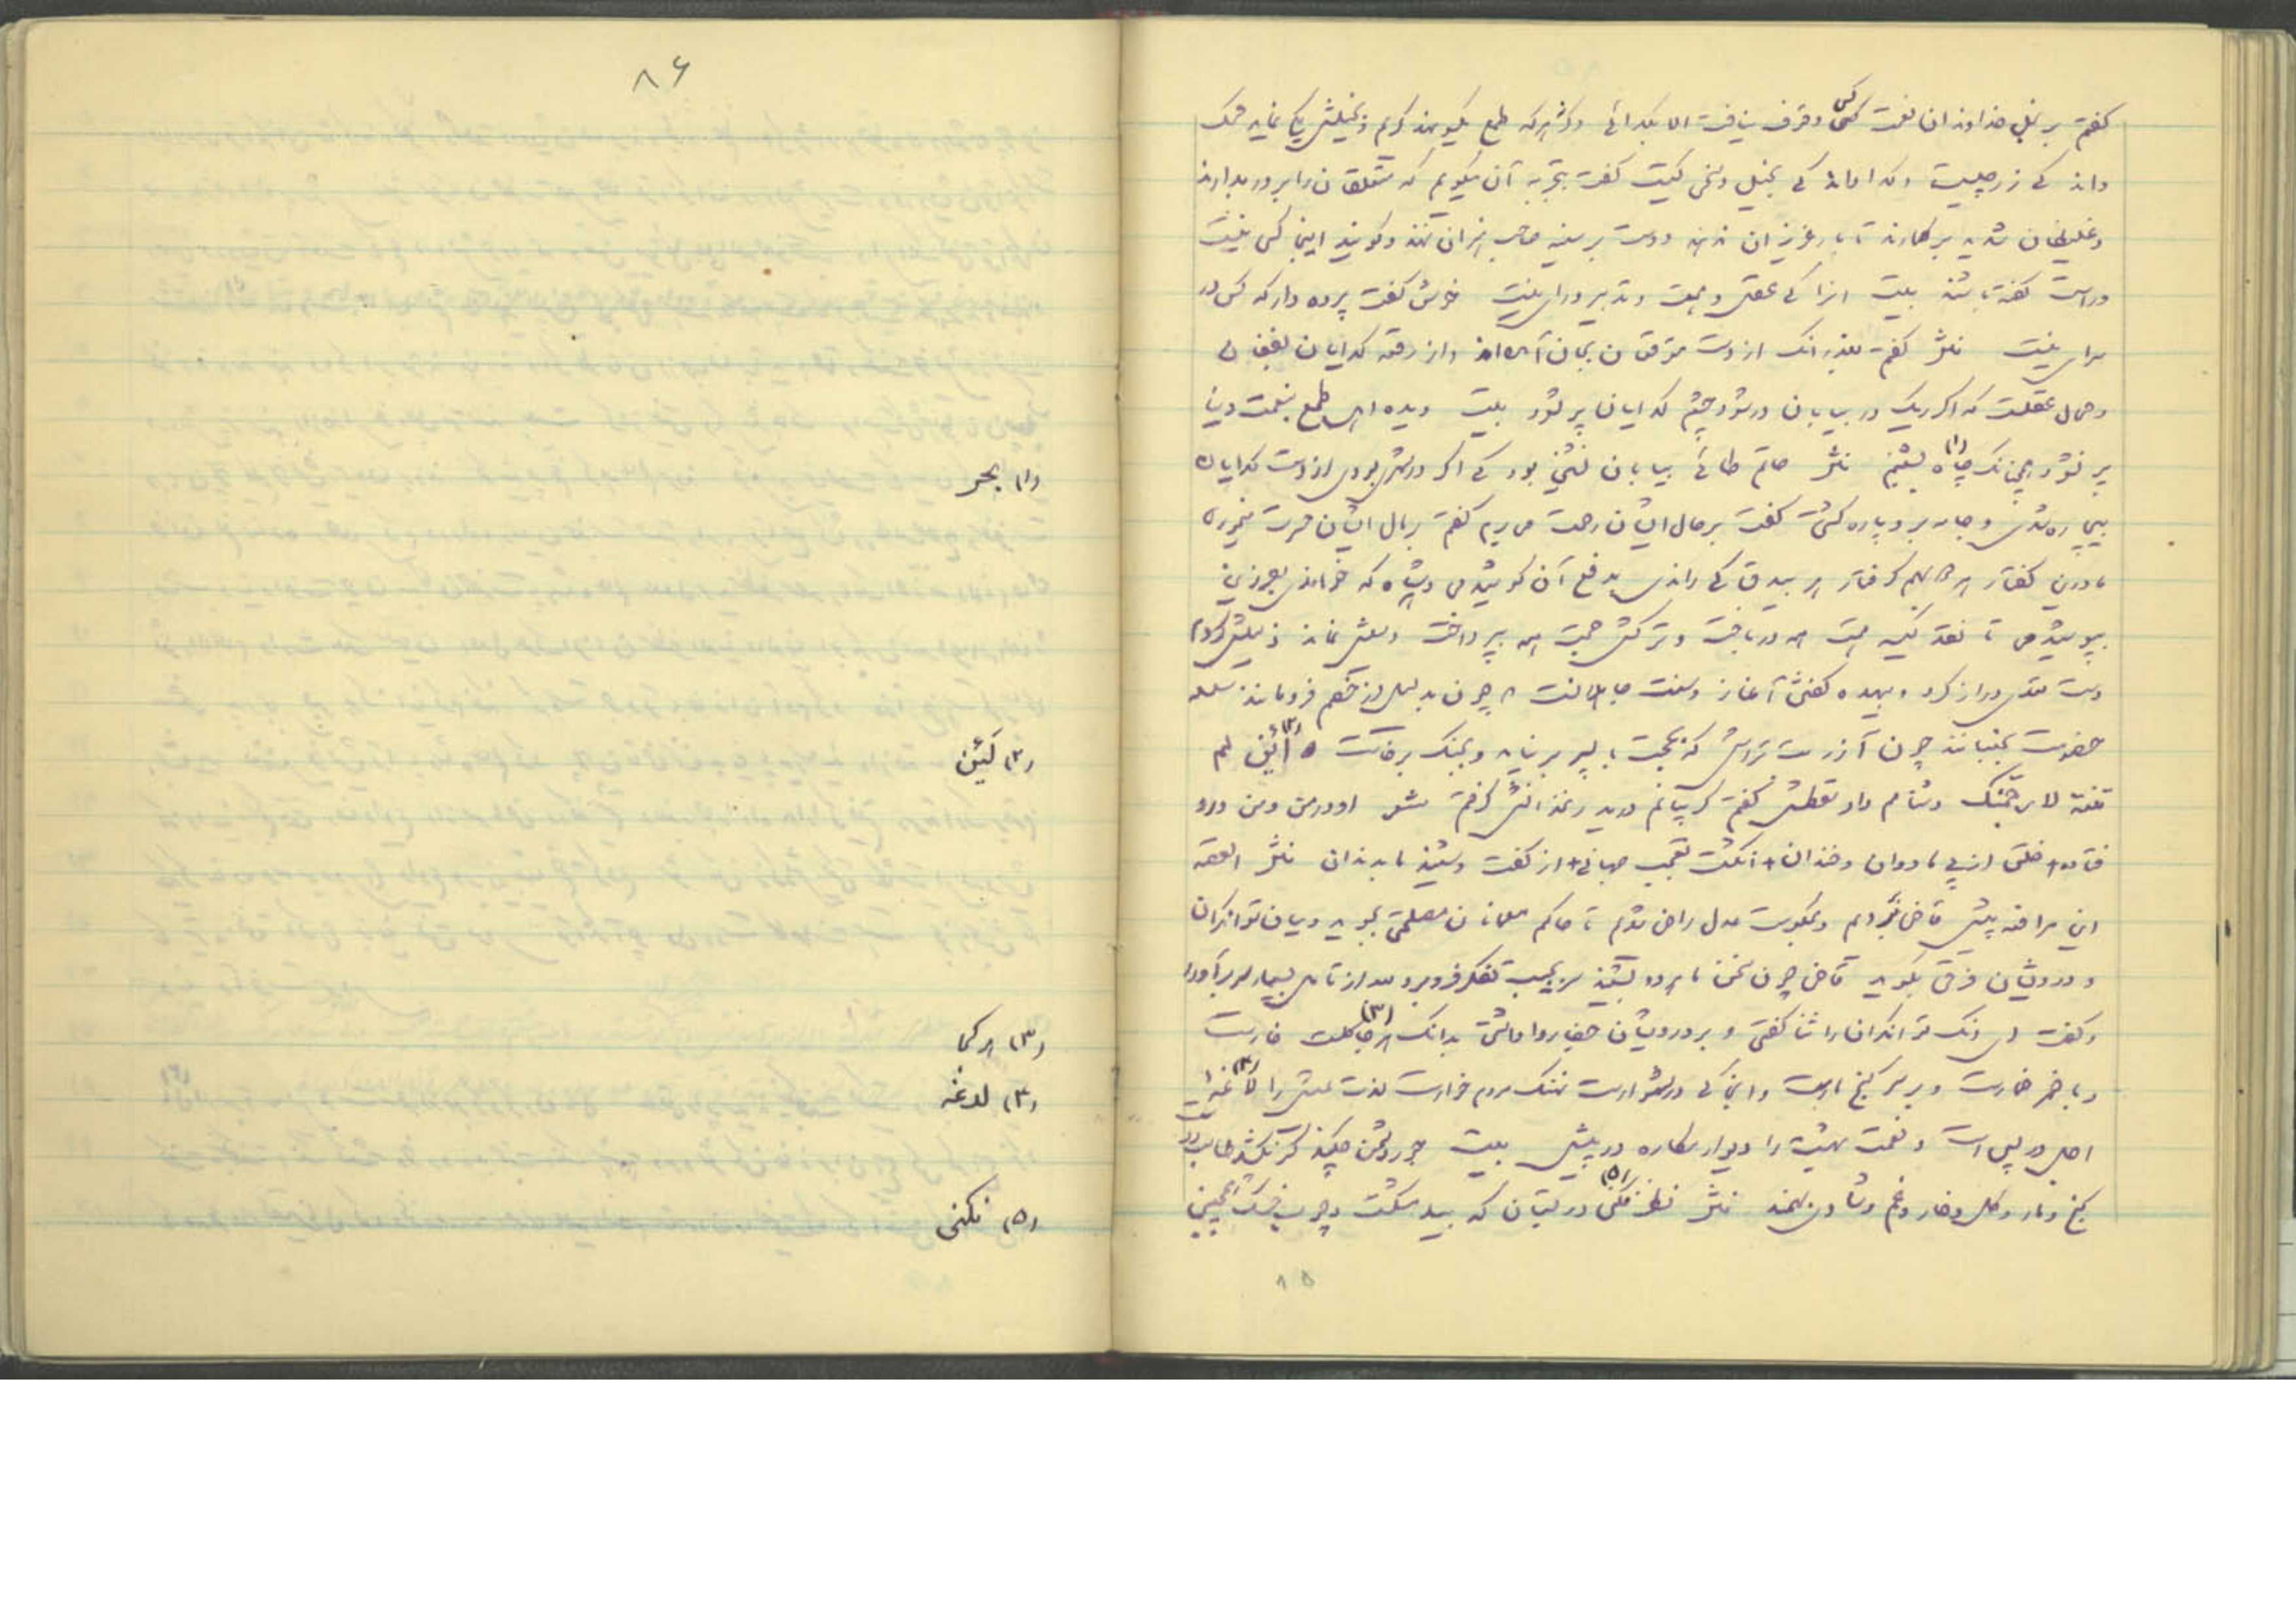 گفتم بر بخل خداوندان نعمت کسی وقوف نیافت الا بگدائی وگرنه هرکه طمع یکسو نهد کریم و بخیلش یکی نماید محک
داند که زر چیست و گدا داند که بخیل و سخی کیست گفت بتجربه آن میگویم که متعلقان را بر در بدارند
و غلیظان شدید بر گمارند تا بار عزیزان ندهند و دست بر سینه صاحب تمیزان نهند و گویند اینجا کسی نیست
و راست گفته باشند بیت آنرا که عقل و همت و تدبیر و رای نیست خوش گفت پرده دار که کس در
سرای نیست نثر گفتم بعذر آنک از دست متوقعان بجان آمده اند و از رقعه گدایان بفغان
و محال عقلست که اگر ریگ در بیابان در شود چشم گدایان پر شود بیت دیده اهل طمع بنعمت دنیا
پر نشود همچنانک چاه (۱) بشبنم نثر حاتم طائی بیابان نشین بود که اگر در شهر بودی از دست گدایان
بیچاره شدی و جامه برو پاره گشت گفت بر حال ایشان رحمت می برم گفتم بمال ایشان حسرت میخوری
ما درین گفتار هر دو بهم گرفتار هر بیدق که راندی بدفع آن کوشیدمی و هر شاه که خواندی بفرزین
بپوشیدمی تا نقد کیسه همت همه درباخت و تیر ترکش حجت همه بپرداخت دلیلش نماند ذلیلش کردم
دست تعدی دراز کرد و بیهده گفتن آغاز و سنت جاهلانست که چون بدلیل از خصم فرومانند سلسله
خصومت بجنبانند چون آزر بت تراش که بحجت با پسر بر نیامد و بجنگ برخاست (۲) لئن لم
تنته لارجمنک دشنامم داد سقطش گفتم گریبانم درید زنخدانش گرفتم شعر او در من و من درو
فتاده خلق از پی ما دوان و خندان انگشت تعجب جهانی از گفت و شنید ما بدندان نثر القصه
این مرافعه پیش قاضی بردیم و بحکومت عدل راضی شدیم تا حاکم مسلمانان مصلحتی بجوید و میان توانگران
و درویشان فرقی بگوید قاضی چون سخن ما هر دو بشنید سر بجیب تفکر فرو برد و بعد از تامل بسیار سر برآورد
و گفت ای آنک توانگران را ثنا گفتی و بر درویشان جفا روا داشتی بدانک هر جا (۳) گلست خارست
و با خمر خمارست و بر سر گنج مارست و آنجا که در شهوارست نهنگ مردم خوارست لذت عیش را لدغه (۴)
اجل در پی است و نعمت بهشت را دیوار مکاره در پیش بیت جور دشمن چکند گر نکشد طالب دوست
گنج و مار و گل و خار و غم و شادی بهمند نثر نظر نکنی (۵) در بستان که بید مشکست و چوب خشک همچنین
۸۵
۸۶
(۱) بحر
(۲) کئن
(۳) هر کجا
(۴) لدغه
(۵) نکنی